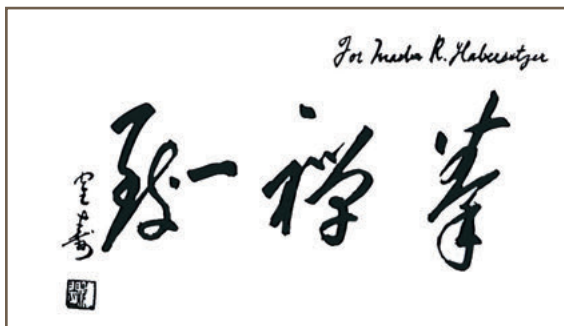 For Master R. Habersetzer
拳禅一致